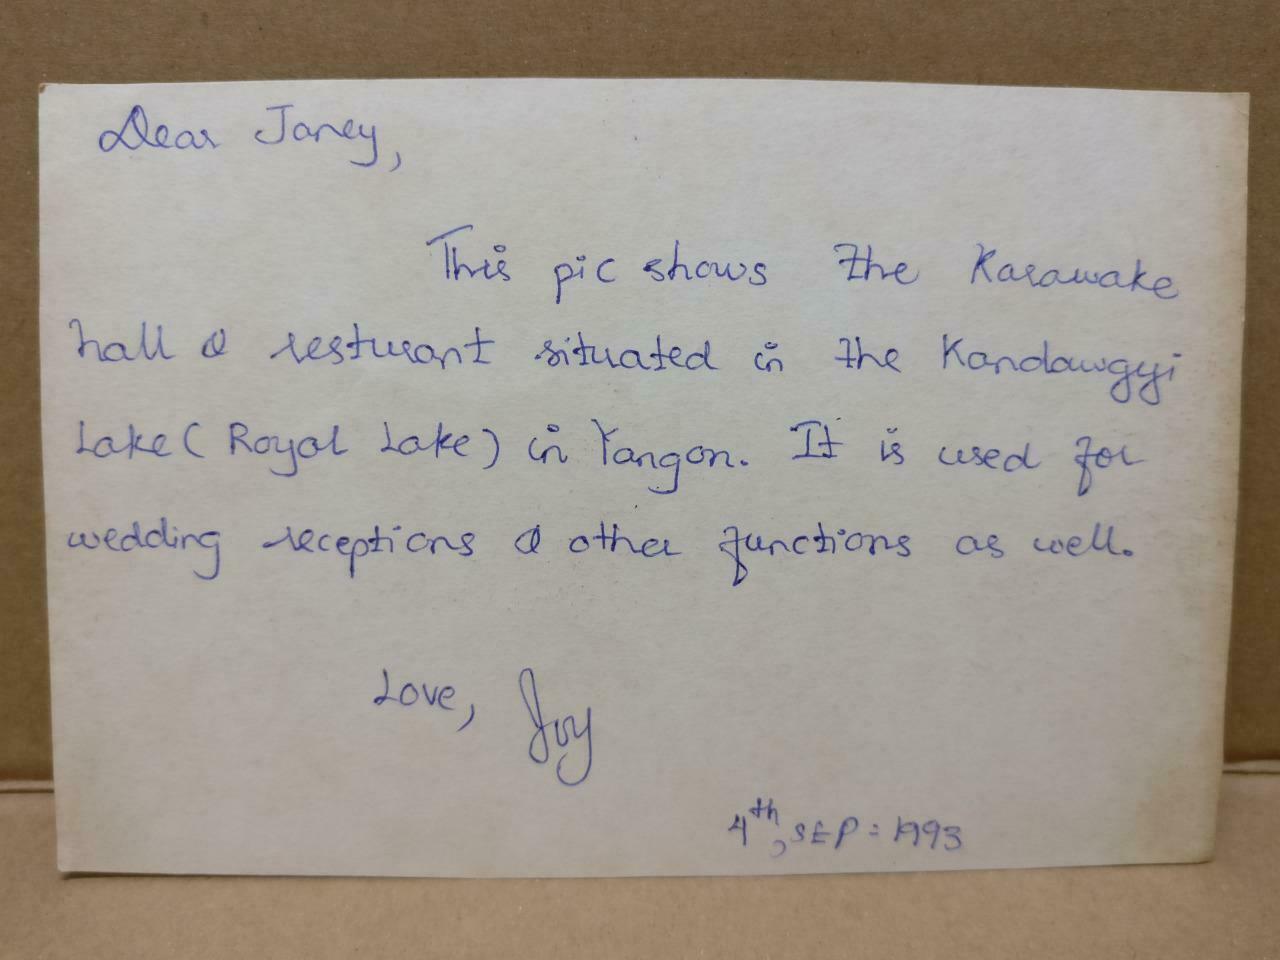 Dear Janey,
This pic shows the Karawake
hall & resturant situated in the Kandawgyi
Lake (Royal Lake) in Yangon. It is used for
wedding receptions & other functions as well.
Love, Joy
4th, SEP = 1993